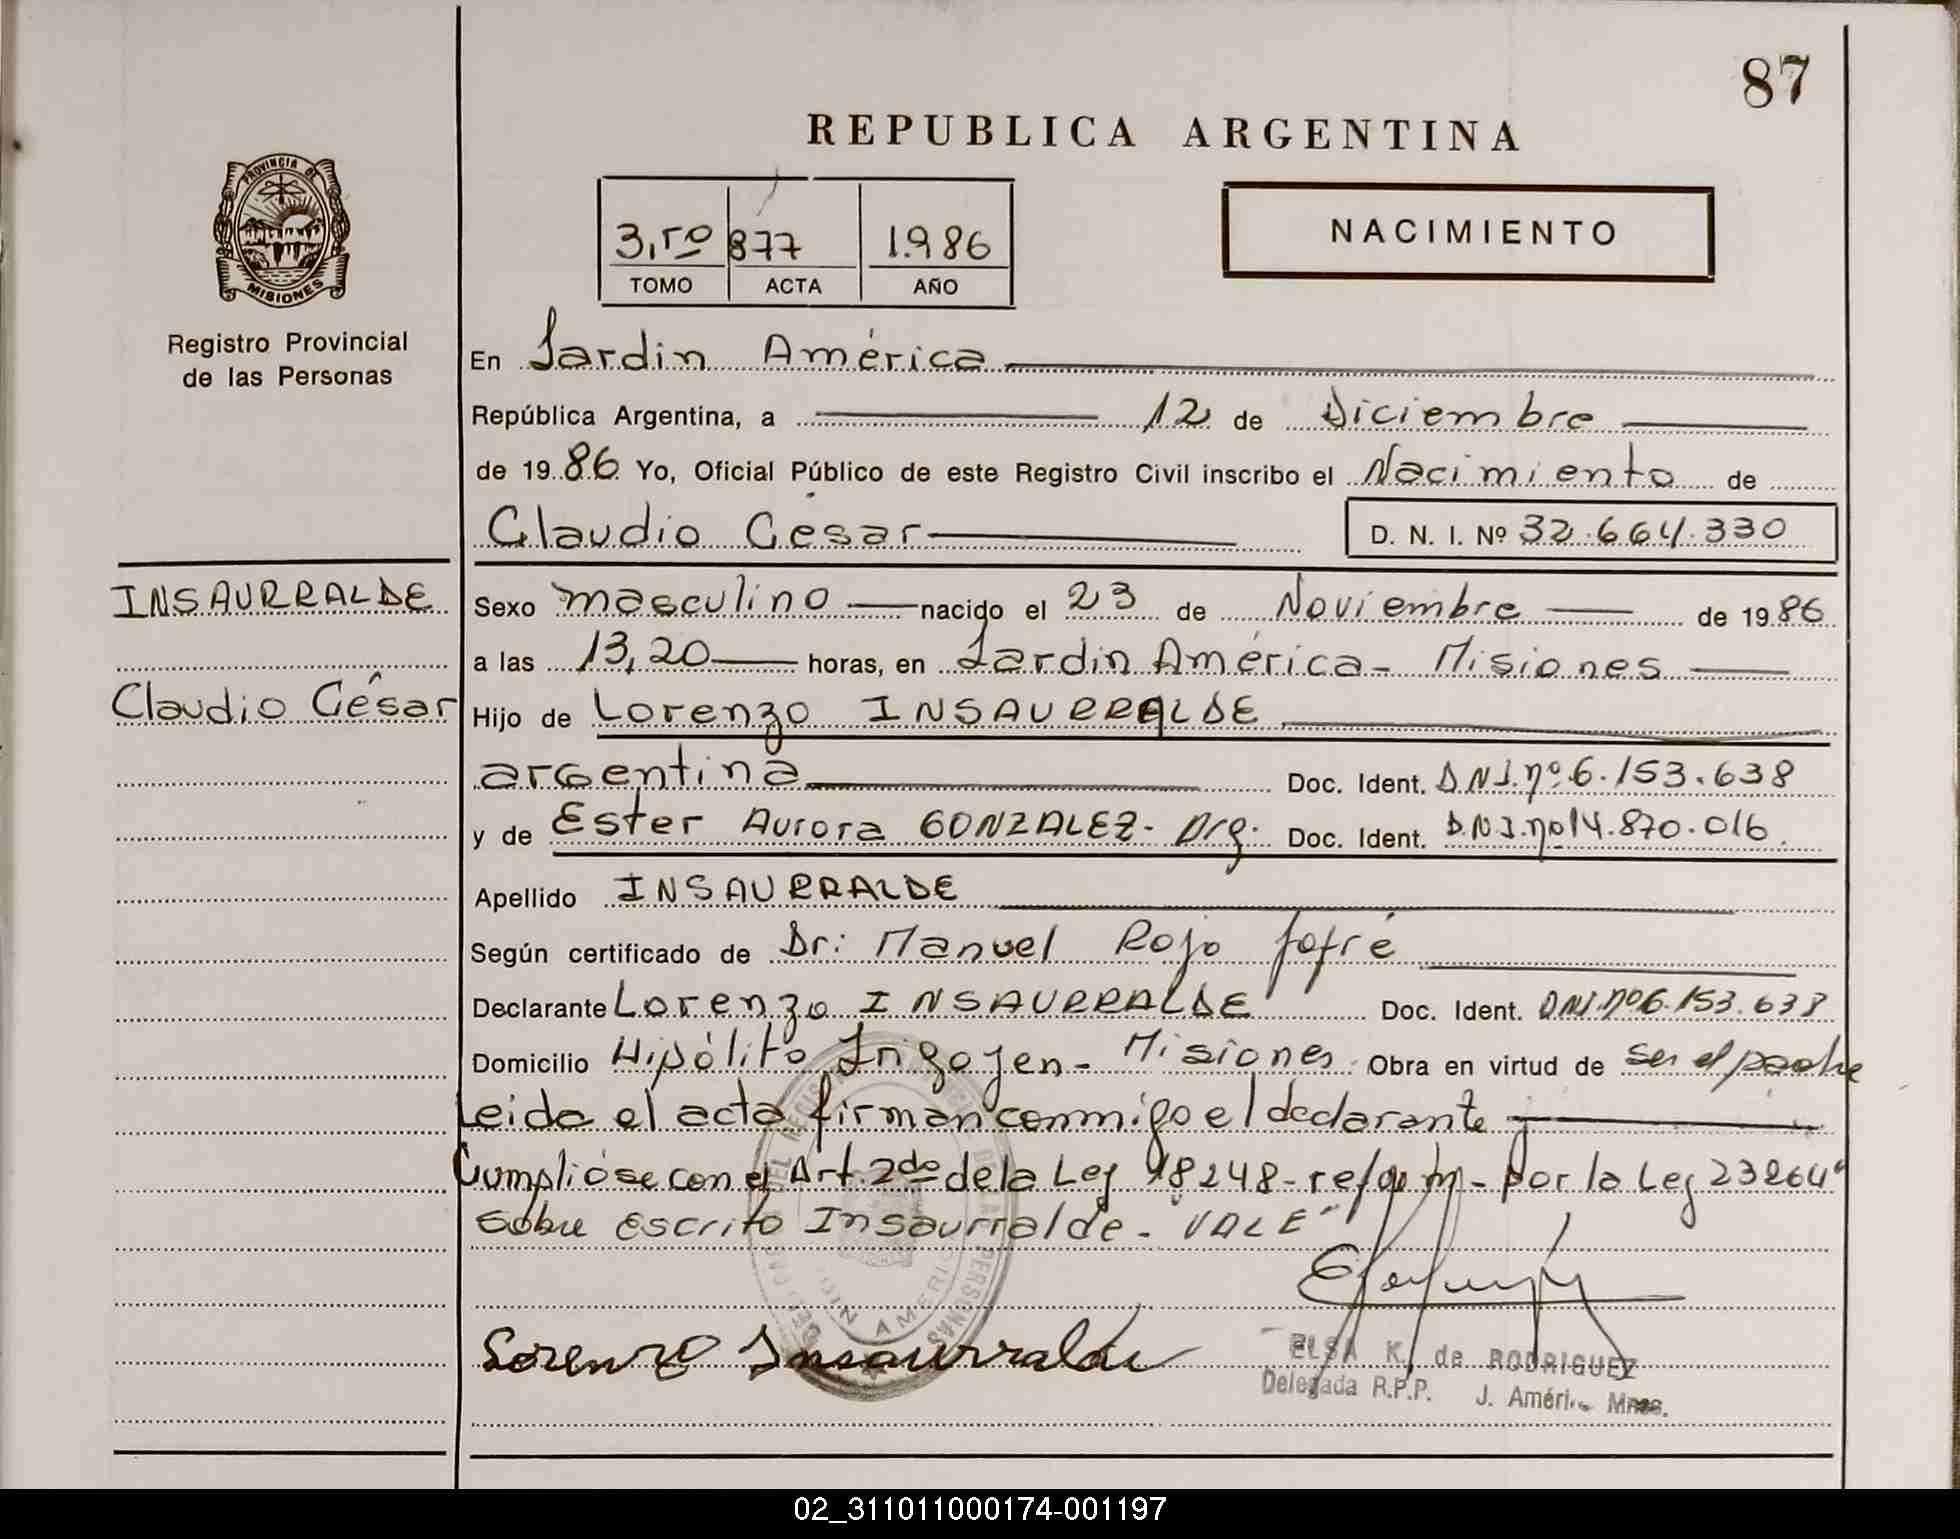 87
REPUBLICA ARGENTINA
PROVINCIA DE
MISIONES
Registro Provincial
de las Personas
3,ro 877 1.986
TOMO ACTA AÑO
NACIMIENTO
En Jardin América
República Argentina, a 12 de Diciembre
de 19 86 Yo, Oficial Público de este Registro Civil inscribo el Nacimiento de
Claudio César D. N. I. Nº 32.664.330
INSAURRALDE
Claudio César
Sexo masculino nacido el 23 de Noviembre de 19 86
a las 13,20 horas, en Jardin América - Misiones
Hijo de Lorenzo INSAURRALDE
argentina Doc. Ident. D.N.I. nº 6.153.638
y de Ester Aurora GONZALEZ - Arg. Doc. Ident. D.N.I. nº 14.870.016
Apellido INSAURRALDE
Según certificado de Dr: Manuel Rojo Jofré
Declarante Lorenzo INSAURRALDE Doc. Ident. DNI. nº 6.153.638
Domicilio Hipólito Irigoyen - Misiones Obra en virtud de ser el padre
Leida el acta firman conmigo el declarante
Cumplióse con el Art. 2do de la Ley 18248 - reform - por la Ley 23264"
Sobre escrito Insaurralde - "VALE"
Lorenzo Insaurralde
ELSA K. de RODRIGUEZ
Delegada R.P.P. J. Améri
02_311011000174-001197